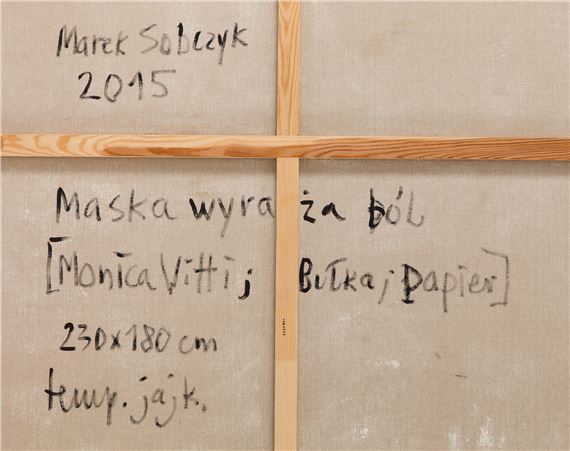 Marek Sobczyk
2015
Maska wyraża ból
[Monica Vitti; Bułka; papier]
230x180 cm
temp. jajk.